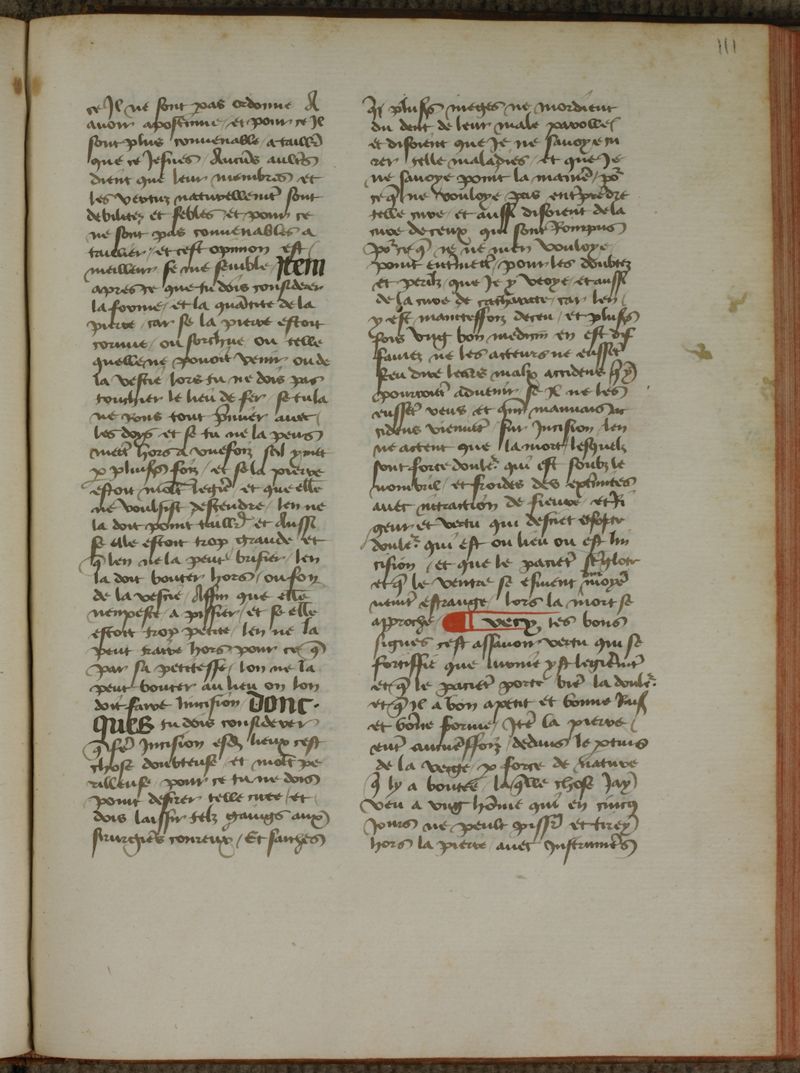 111
ce Il ne sont pas ordonne A
auoir apostume / et pour ce Il
sont plus conuenable a taill
que ce Jeunes / Aucus aultrs
dient que leur membres et
les vertuz naturellement sont
debilitez et febles et pour ce
ne sont pas conuenables a
taillier / et cest opinion est
meilleur se me semble Item
apres ce que tu dois considerer
la forme / et la quātite de la
pierre / car se la pierre estoit
cornue / ou forchue ou telle
quelle ne pouoit venir ou de
la vessie lors tu ne dois pas
touchier le lieu de fer / se tu la
ne tout auec
les dois / et se tu ne la peus
mett hors a vne foiz
p plusrs foiz / et se la pierre
estoit molt legie et que elle
ne voulsist descendre / len ne
la doit point taillr / et Aussi
se elle estoit trop grande et
q len ne la peut brisier / len
la doit bouter hors / ou fon
de la vessie / Affin que elle
nempesce a pissier / et se elle
estoit trop petite / len ne la
peut traire hors pour ce q
par sa petitesse / lon ne la
peut bouter au lieu ou lon
doit faire Incision / Donc
ques tu dois considerer
q Incision esd lieux cest
chose doubteuse et molt pe
rilleuse / pour ce tu ne dois
point desirer telle cure / et
dois laissir telz gaings aux
sirurgies coureux / Et saiches
q plusrs meges ne mordient
du dent de leur male parolle
et disoient que Je ne sauoye cu
rer telle maladies / et que Je
ne sauoye point la manie / po
ce q ne vouloye pas entpredre
telle cure / et aussi disoient de la
cure de ceux qui sont Rompus
po ce q Je ne men vouloye
point entmett / pour les doubtez
et perilz que Je y veoye / et aussi
de la cure de catharate / car len
y est maintesfoiz deceu / et plusrs
fois vng bon medicin en est dif
famez ne les acteurs ne eusset
dire les malx accidens
pourroit aduenir / se Il ne les
eusset veus et qm mauuais ac
cidens vienent / sur Incision / len
ne actent que la mort / lesquelz
sont forte doule qui est soubz le
nombril / et froides des extmites
auec de fieure / et Ri
geur et vertu qui deffiet
doule qui est ou lieu ou est lin
cision / et que le paciet
et q le ventre se esment
vienent estrange / lors la mort se
approche / ¶ vecy les bons
signes cest assauoir vertu qui se
fortiffie que lurine yst legiemt
et q le paciet porte bie la doule
et q Il a bon apetit et bonne
et bōne forme / Ite la pierre
vient aucuesfoiz / dedans le ptuis
de la verge / p force de nature
q ly a boutee / la qlle chose Jay
veu a vng hōme qui en cincq
Jours ne peult pissr / et tirey
hors la pierre / auec Instrumes